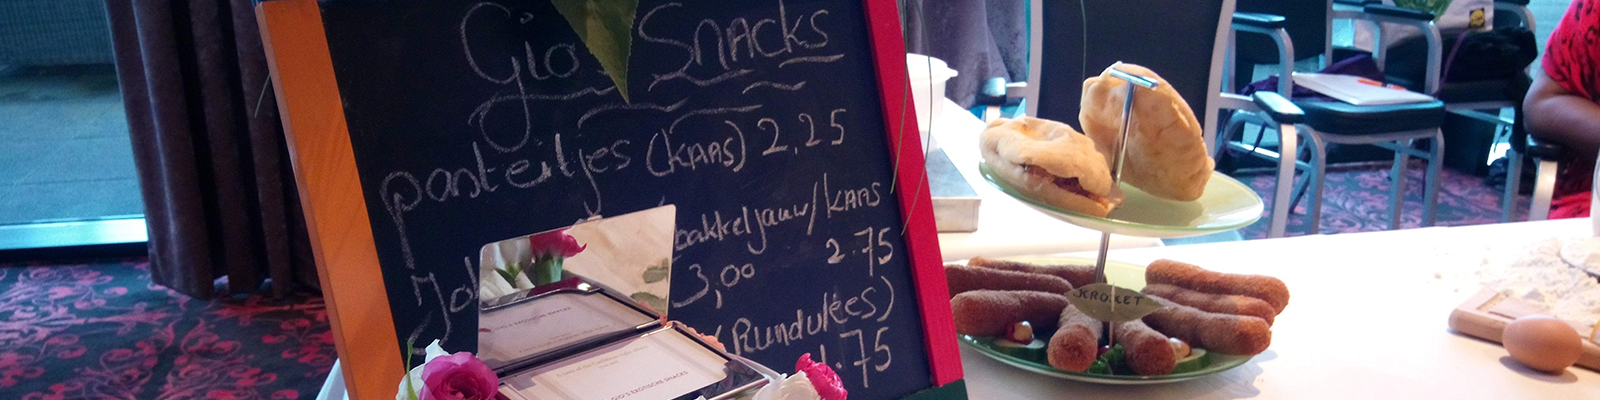 Gio's Snacks
pasteitjes (KAAS) 2,25
bakkeljauw/KAAS
3,00 2.75
(Rundvlees)
1.75
GIO'S EXOTISCHE SNACKS
KROKET